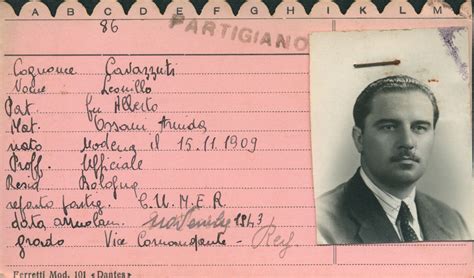 A B C D E F G H I K L M
86
PARTIGIANO
Cognome Cavazzuti
Nome Leonillo
Pat. fu Alberto
Mat. Ossani Armida
nato Modena il 15.11.1909
Proff. Ufficiale
Resid. Bologna
reparto partig. C.U.M.E.R
data arruolam. novembre 1943
grado Vice Comandante -
Ferretti Mod. 101 «Dantea»